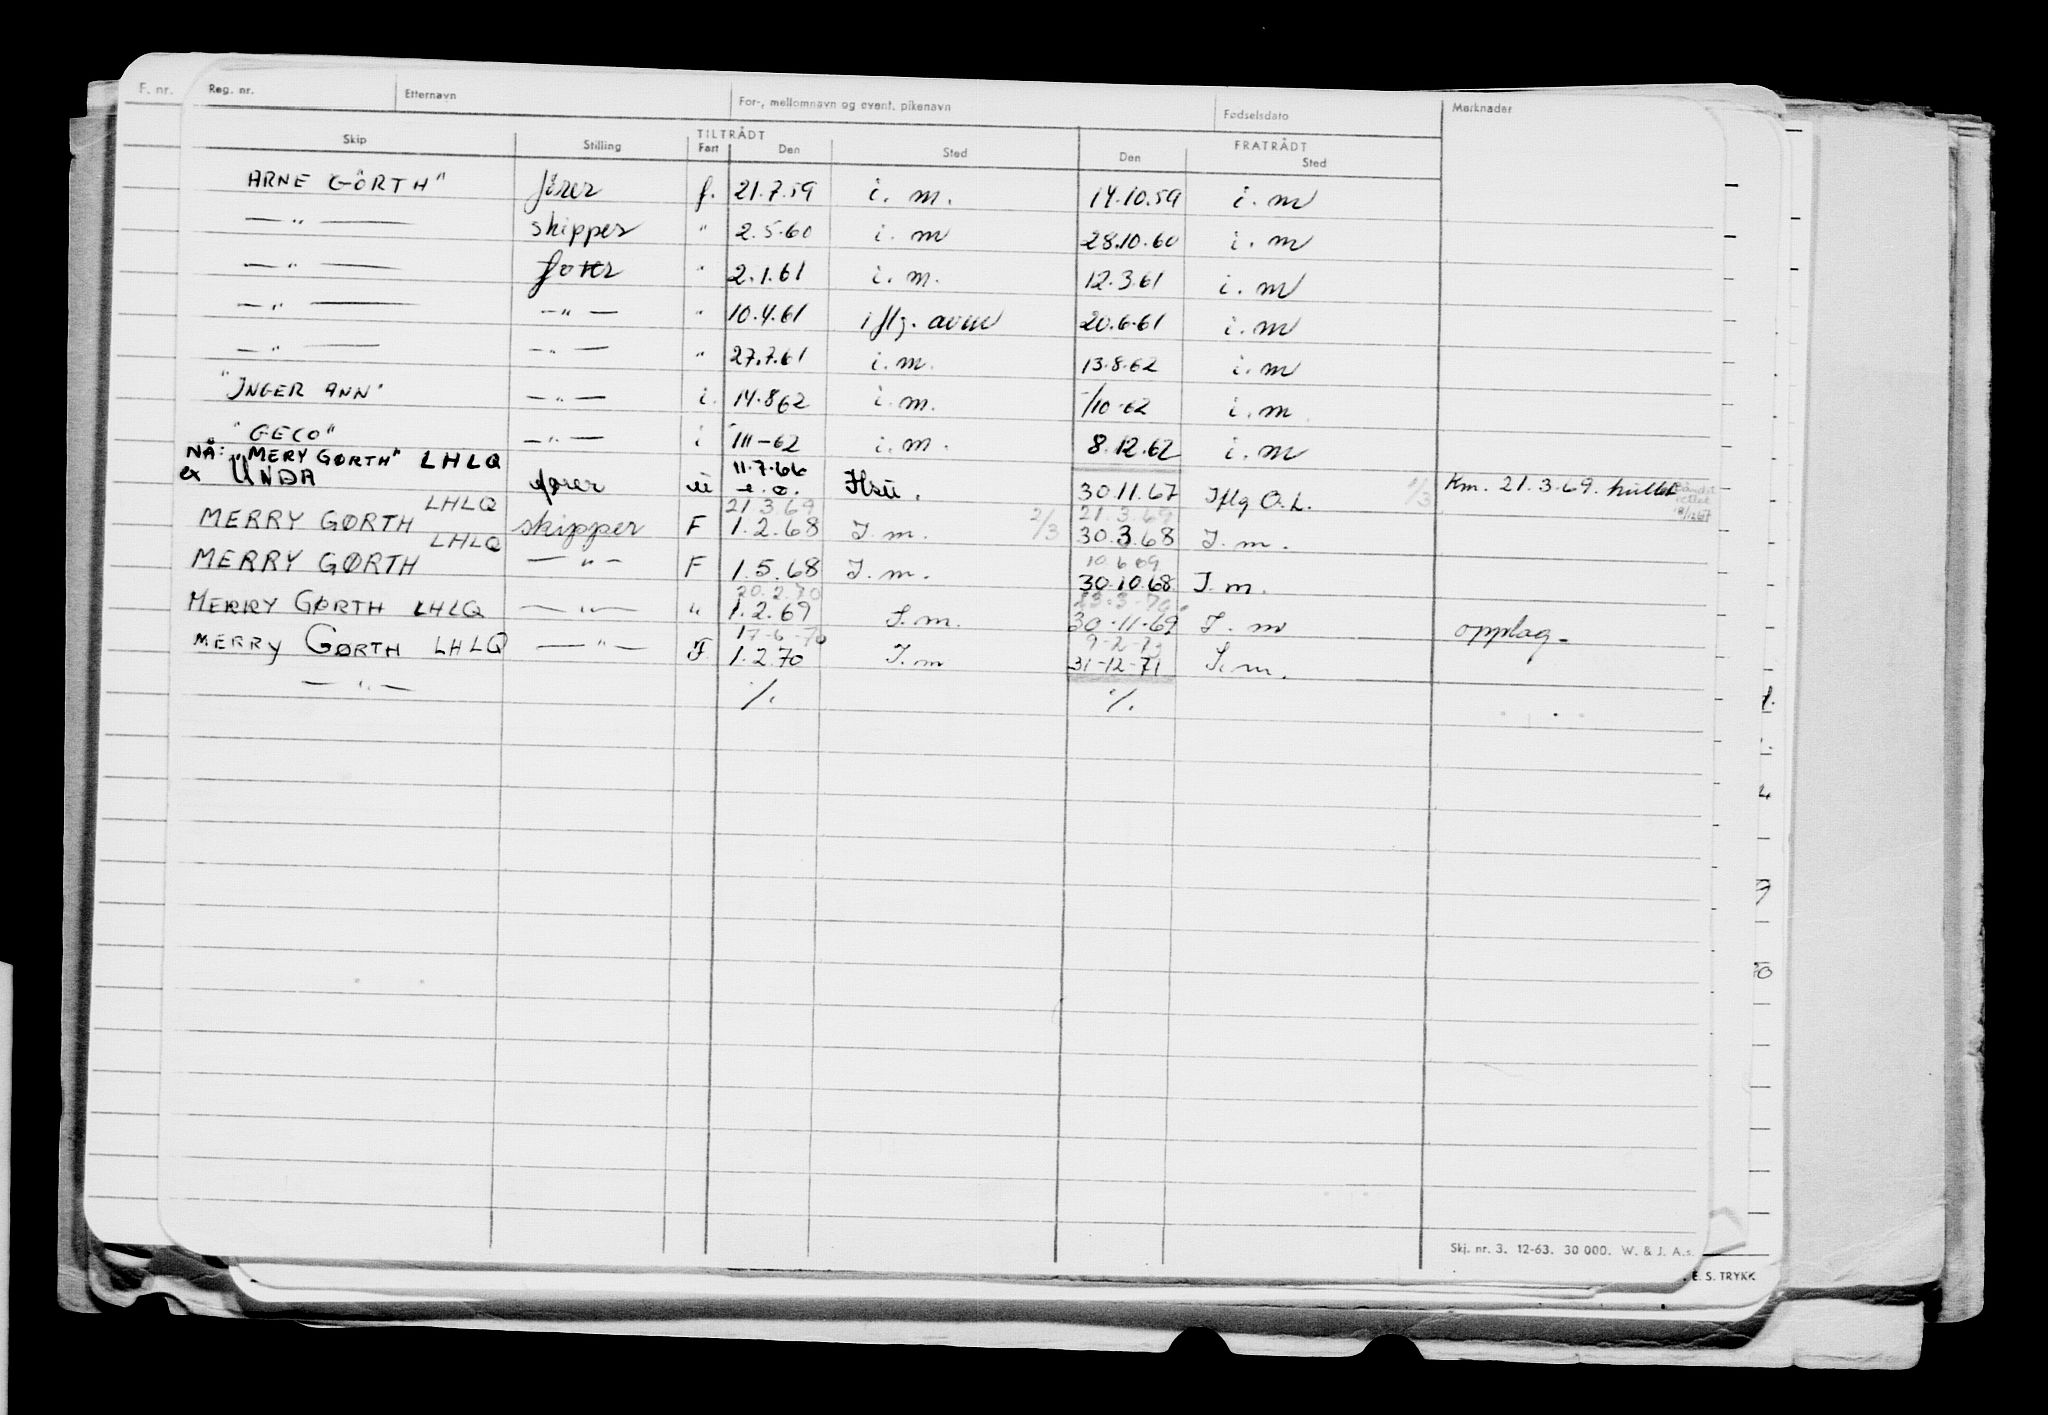 F. nr. Reg. nr. Etternavn For-, mellomnavn og event. pikenavn Fødselsdato Merknader
TILTRÅDT FRATRÅDT
Skip Stilling Fart Den Sted Den Sted
ARNE GÖRTH" fører f. 21.7.59 i. m. 14.10.59 i. m
— " — skipper " 2.5.60 i. m 28.10.60 i. m
— " — fører " 2.1.61 i. m. 12.3.61 i. m
— " — — " — " 10.4.61 iflg. 20.6.61 i. m
— " — — " — " 27.7.61 i. m. 13.8.62 i. m
"INGER ANN" — " — i. 14.8.62 i. m. -/10-62 i. m.
"GECO" — " — i 1/11-62 i. m. 8.12.62 i. m
NÅ: "MERY GØRTH" LHLQ 11.7.66
ex UNDA fører u e.o. 30.11.67 Iflg O.L. 1/3 Km. 21.3.69.
LHLQ 21.3.69 21.3.69
MERRY GØRTH skipper F 1.2.68 I. m. 2/3 30.3.68 I. m.
LHLQ 10.6.69
MERRY GØRTH — " — F 1.5.68 I. m. 30.10.68 I. m.
20.2.70 23.3.70
MERRY GØRTH LHLQ — " — " 1.2.69 I. m. 30-11-69 I. m opplag-
17-6-70 9-2-73
MERRY GØRTH LHLQ — " — F. 1.2.70 I. m 31-12-71 I. m.
— " — ./. ./.
Skj. nr. 3. 12-63. 30 000. W. & J. A.s.
E. S. TRYKK